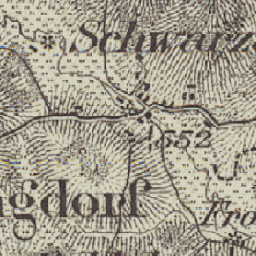 Schwarz
552
ngdorf
Fro